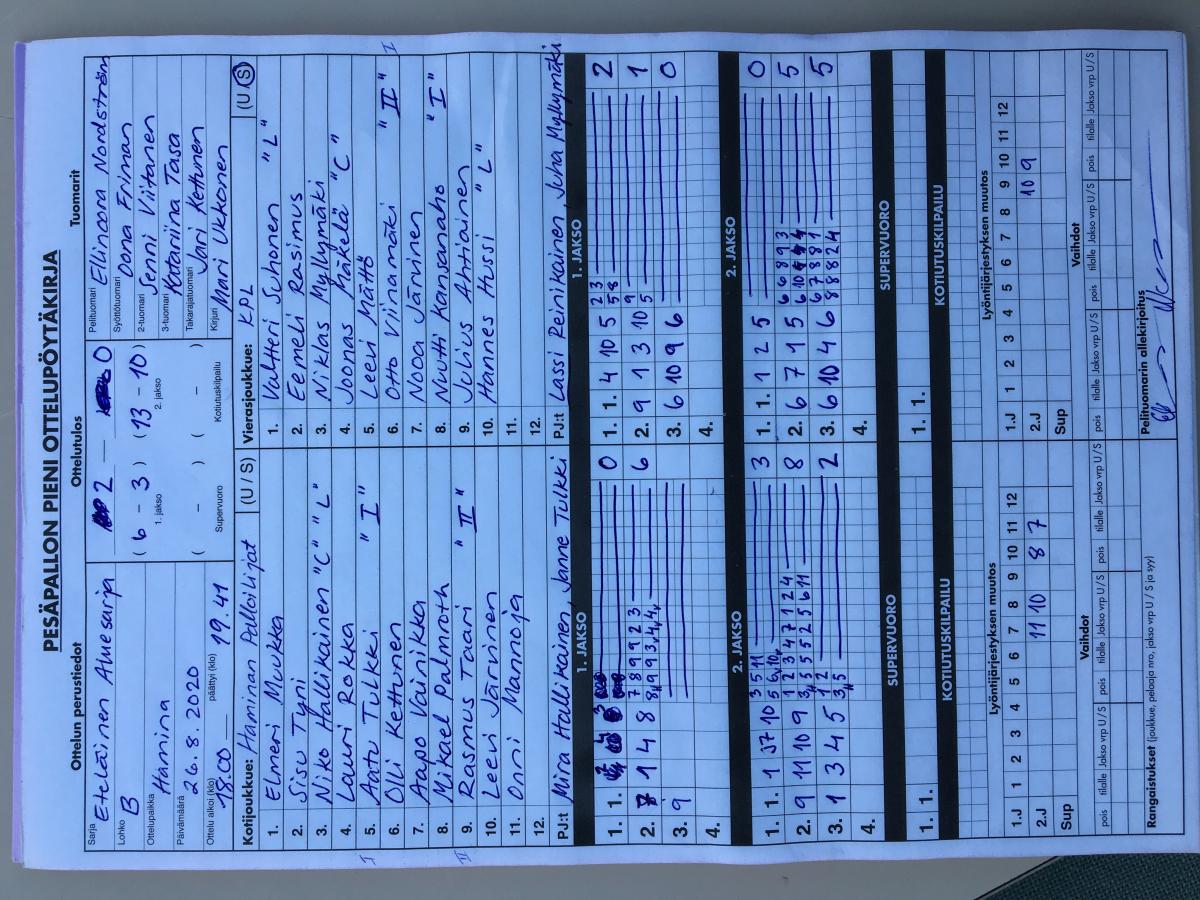 PESÄPALLON PIENI OTTELUPÖYTÄKIRJA
Ottelun perustiedot
Sarja Eteläinen Aluesarja
Lohko B
Ottelupaikka Hamina
Päivämäärä 26.8.2020
Ottelu alkoi (klo) 18.00 päättyi (klo) 19.41
Ottelutulos
2 — 0
( 6 - 3 ) ( 13 - 10 )
1. jakso 2. jakso
( - ) ( - )
Supervuoro Kotiutuskilpailu
Tuomarit
Pelituomari Ellinoora Nordström
Syöttötuomari Oona Friman
2-tuomari Senni Viitanen
3-tuomari Katariina Tasa
Takarajatuomari Jari Kettunen
Kirjuri Mari Ukkonen
Kotijoukkue: Haminan Palloilijat (U / S)
1. Elmeri Mukka
2. Sisu Tyni
3. Niko Hallikainen "C" "L"
4. Lauri Rokka
I 5. Aatu Tulkki "I"
6. Olli Kettunen
7. Aapo Vainikka
8. Mikael Palmroth
II 9. Rasmus Taari "II"
10. Leevi Järvinen
11. Onni Mannoja
12.
PJ:t Mira Hallikainen, Janne Tulkki
Vierasjoukkue: KPL (U / S)
1. Valtteri Suhonen "L"
2. Eemeli Rasimus
3. Niklas Myllymäki
4. Joonas Mäkelä "C"
5. Leevi Mättö
6. Otto Viinamäki "II" I
7. Nooa Järvinen
8. Nuutti Kansanaho "I"
9. Julius Ahtiainen
10. Hannes Hussi "L"
11.
12.
PJ:t Lassi Reinikainen, Juha Myllymäki
1. JAKSO
1. 1. 0
2. 1 4 8 6
3. 9
4.
1. JAKSO
1. 1. 4 10 5 2
2. 9 1 3 10 1
3. 6 10 9 6 0
4.
2. JAKSO
1. 1. 3
2. 9 11 10 9 8
3. 1 3 4 5 2
4.
2. JAKSO
1. 1. 1 2 5 0
2. 6 7 1 5 5
3. 6 10 4 6 5
4.
SUPERVUORO
1. 1.
SUPERVUORO
1. 1.
KOTIUTUSKILPAILU
KOTIUTUSKILPAILU
Lyöntijärjestyksen muutos
1.J 1 2 3 4 5 6 7 8 9 10 11 12
2.J 11 10 8 7
Sup
Lyöntijärjestyksen muutos
1.J 1 2 3 4 5 6 7 8 9 10 11 12
2.J 10 9
Sup
Vaihdot
pois tilalle Jakso vrp U / S pois tilalle Jakso vrp U / S pois tilalle Jakso vrp U / S
Vaihdot
pois tilalle Jakso vrp U / S pois tilalle Jakso vrp U / S pois tilalle Jakso vrp U / S
Rangaistukset (joukkue, pelaaja nro, jakso vrp U / S ja syy)
Pelituomarin allekirjoitus